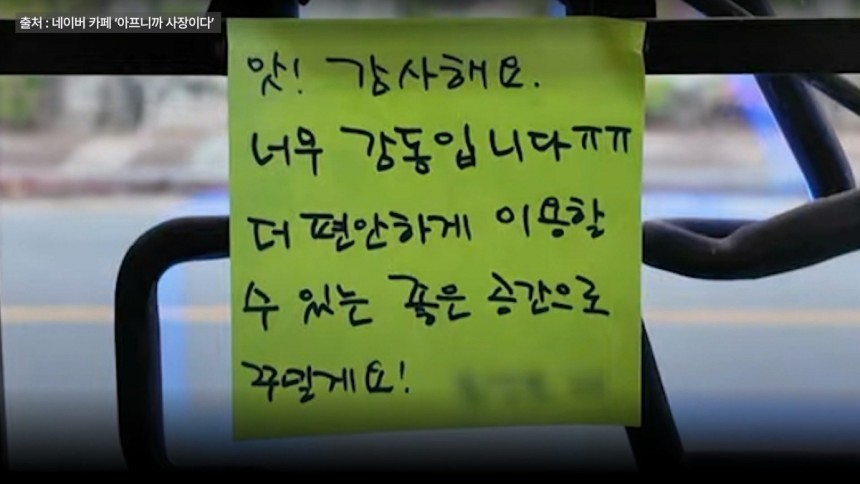 출처 : 네이버 카페 ‘아프니까 사장이다’
앗! 감사해요.
너무 감동입니다ㅠㅠ
더 편안하게 이용할
수 있는 좋은 공간으로
꾸밀게요!